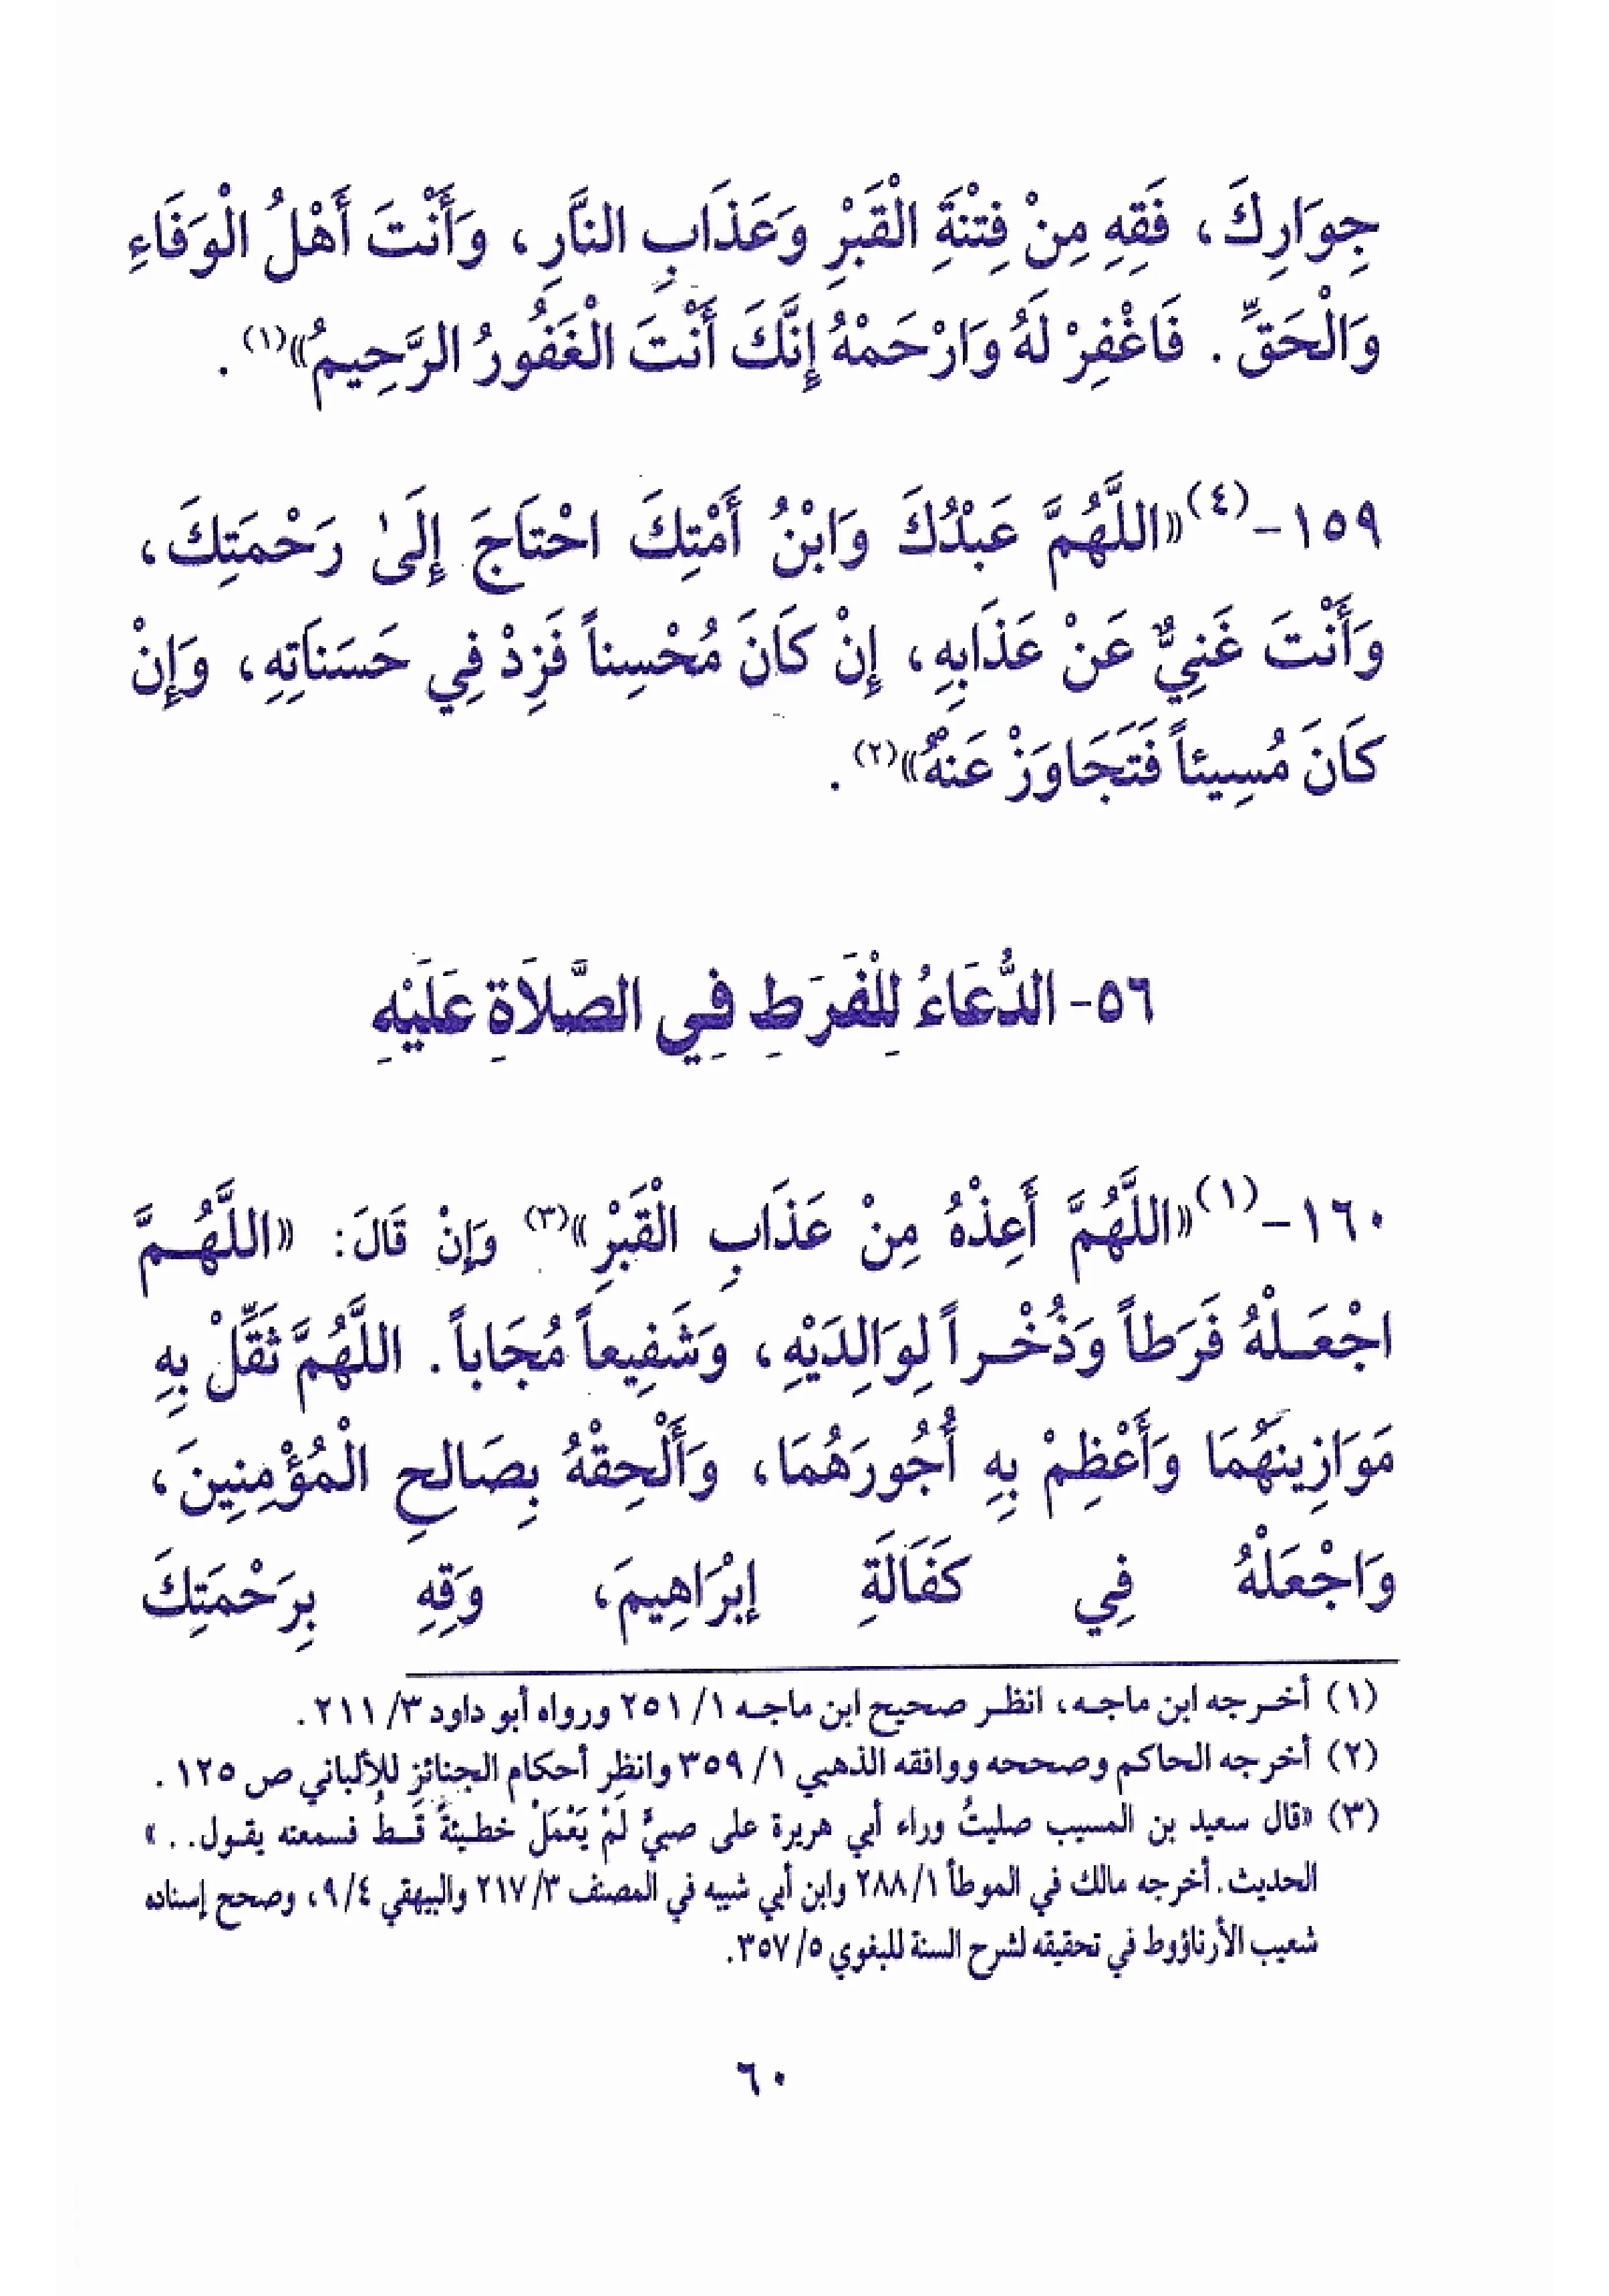 جِوَارِكَ، فَقِهِ مِنْ فِتْنَةِ الْقَبْرِ وَعَذَابِ النَّارِ، وَأَنْتَ أَهْلُ الْوَفَاءِ
وَالْحَقِّ. فَاغْفِرْ لَهُ وَارْحَمْهُ إِنَّكَ أَنْتَ الْغَفُورُ الرَّحِيمُ»(١).
١٥٩-(٤)«اللَّهُمَّ عَبْدُكَ وَابْنُ أَمْتِكَ احْتَاجَ إِلَىٰ رَحْمَتِكَ،
وَأَنْتَ غَنِيٌّ عَنْ عَذَابِهِ، إِنْ كَانَ مُحْسِناً فَزِدْ فِي حَسَنَاتِهِ، وَإِنْ
كَانَ مُسِيئاً فَتَجَاوَزْ عَنْهُ»(٢).
٥٦- الدُّعَاءُ لِلْفَرَطِ فِي الصَّلَاةِ عَلَيْهِ
١٦٠-(١)«اللَّهُمَّ أَعِذْهُ مِنْ عَذَابِ الْقَبْرِ»(٣) وَإِنْ قَالَ: «اللَّهُمَّ
اجْعَلْهُ فَرَطاً وَذُخْراً لِوَالِدَيْهِ، وَشَفِيعاً مُجَاباً. اللَّهُمَّ ثَقِّلْ بِهِ
مَوَازِينَهُمَا وَأَعْظِمْ بِهِ أُجُورَهُمَا، وَأَلْحِقْهُ بِصَالِحِ الْمُؤْمِنِينَ،
وَاجْعَلْهُ فِي كَفَالَةِ إِبْرَاهِيمَ، وَقِهِ بِرَحْمَتِكَ
(١) أخرجه ابن ماجه، انظر صحيح ابن ماجه ١/ ٢٥١ ورواه أبو داود ٣/ ٢١١.
(٢) أخرجه الحاكم وصححه ووافقه الذهبي ١/ ٣٥٩ وانظر أحكام الجنائز للألباني ص ١٢٥.
(٣) «قال سعيد بن المسيب صليتُ وراء أبي هريرة على صبيٍّ لَمْ يَعْمَلْ خطيئةً قَطُّ فسمعته يقول..»
الحديث. أخرجه مالك في الموطأ ١/ ٢٨٨ وابن أبي شيبه في المصنف ٣/ ٢١٧ والبيهقي ٤/ ٩، وصحح إسناده
شعيب الأرناؤوط في تحقيقه لشرح السنة للبغوي ٥/ ٣٥٧.
٦٠